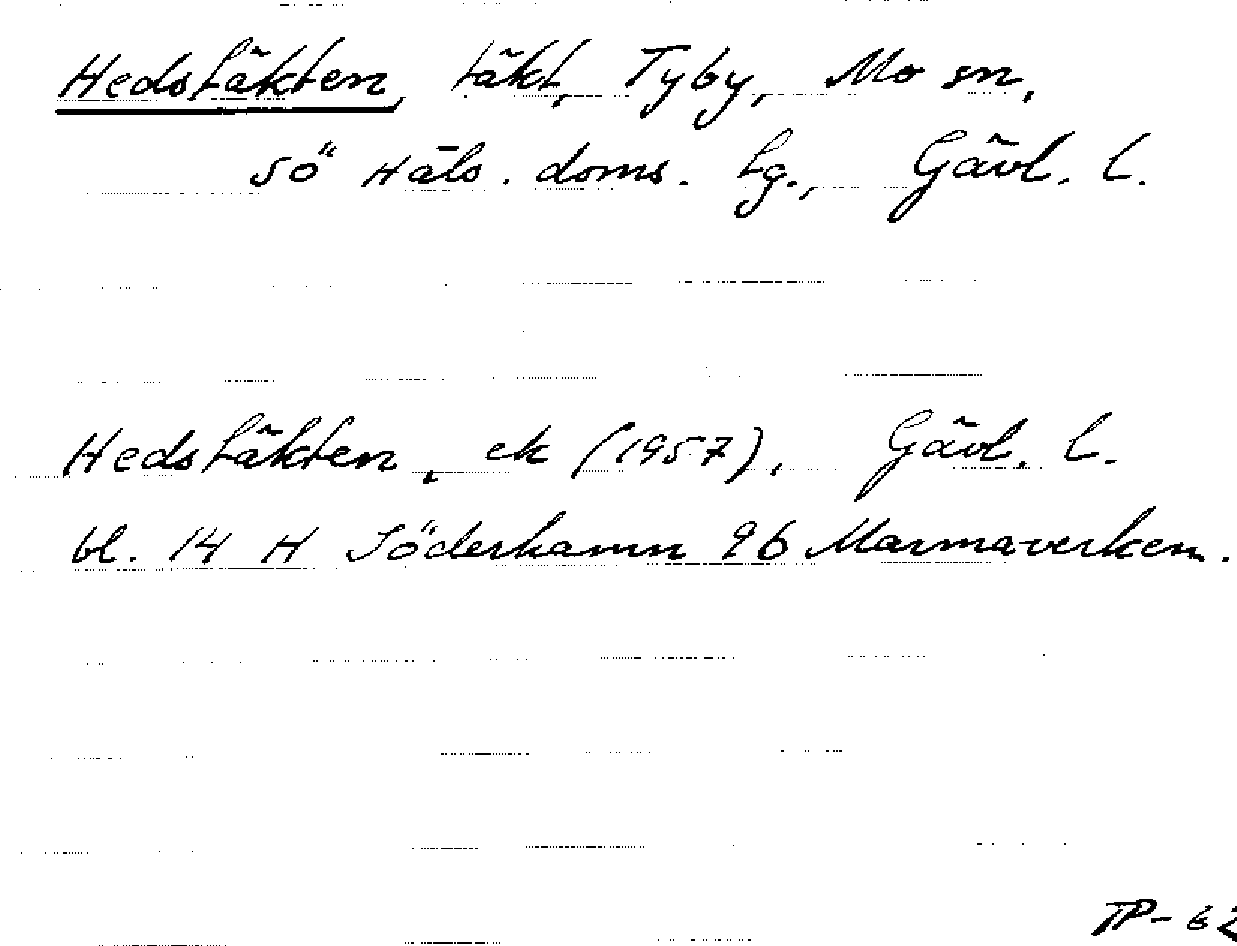 Hedstäkten, täkt, Tyby, Mo sn,
sö Häls. doms. hg., Gävl. l.
Hedstäkten, ek (1957), Gävl. l.
bl. 14 H Söderhamn 9b Marmaverken.
TP-62